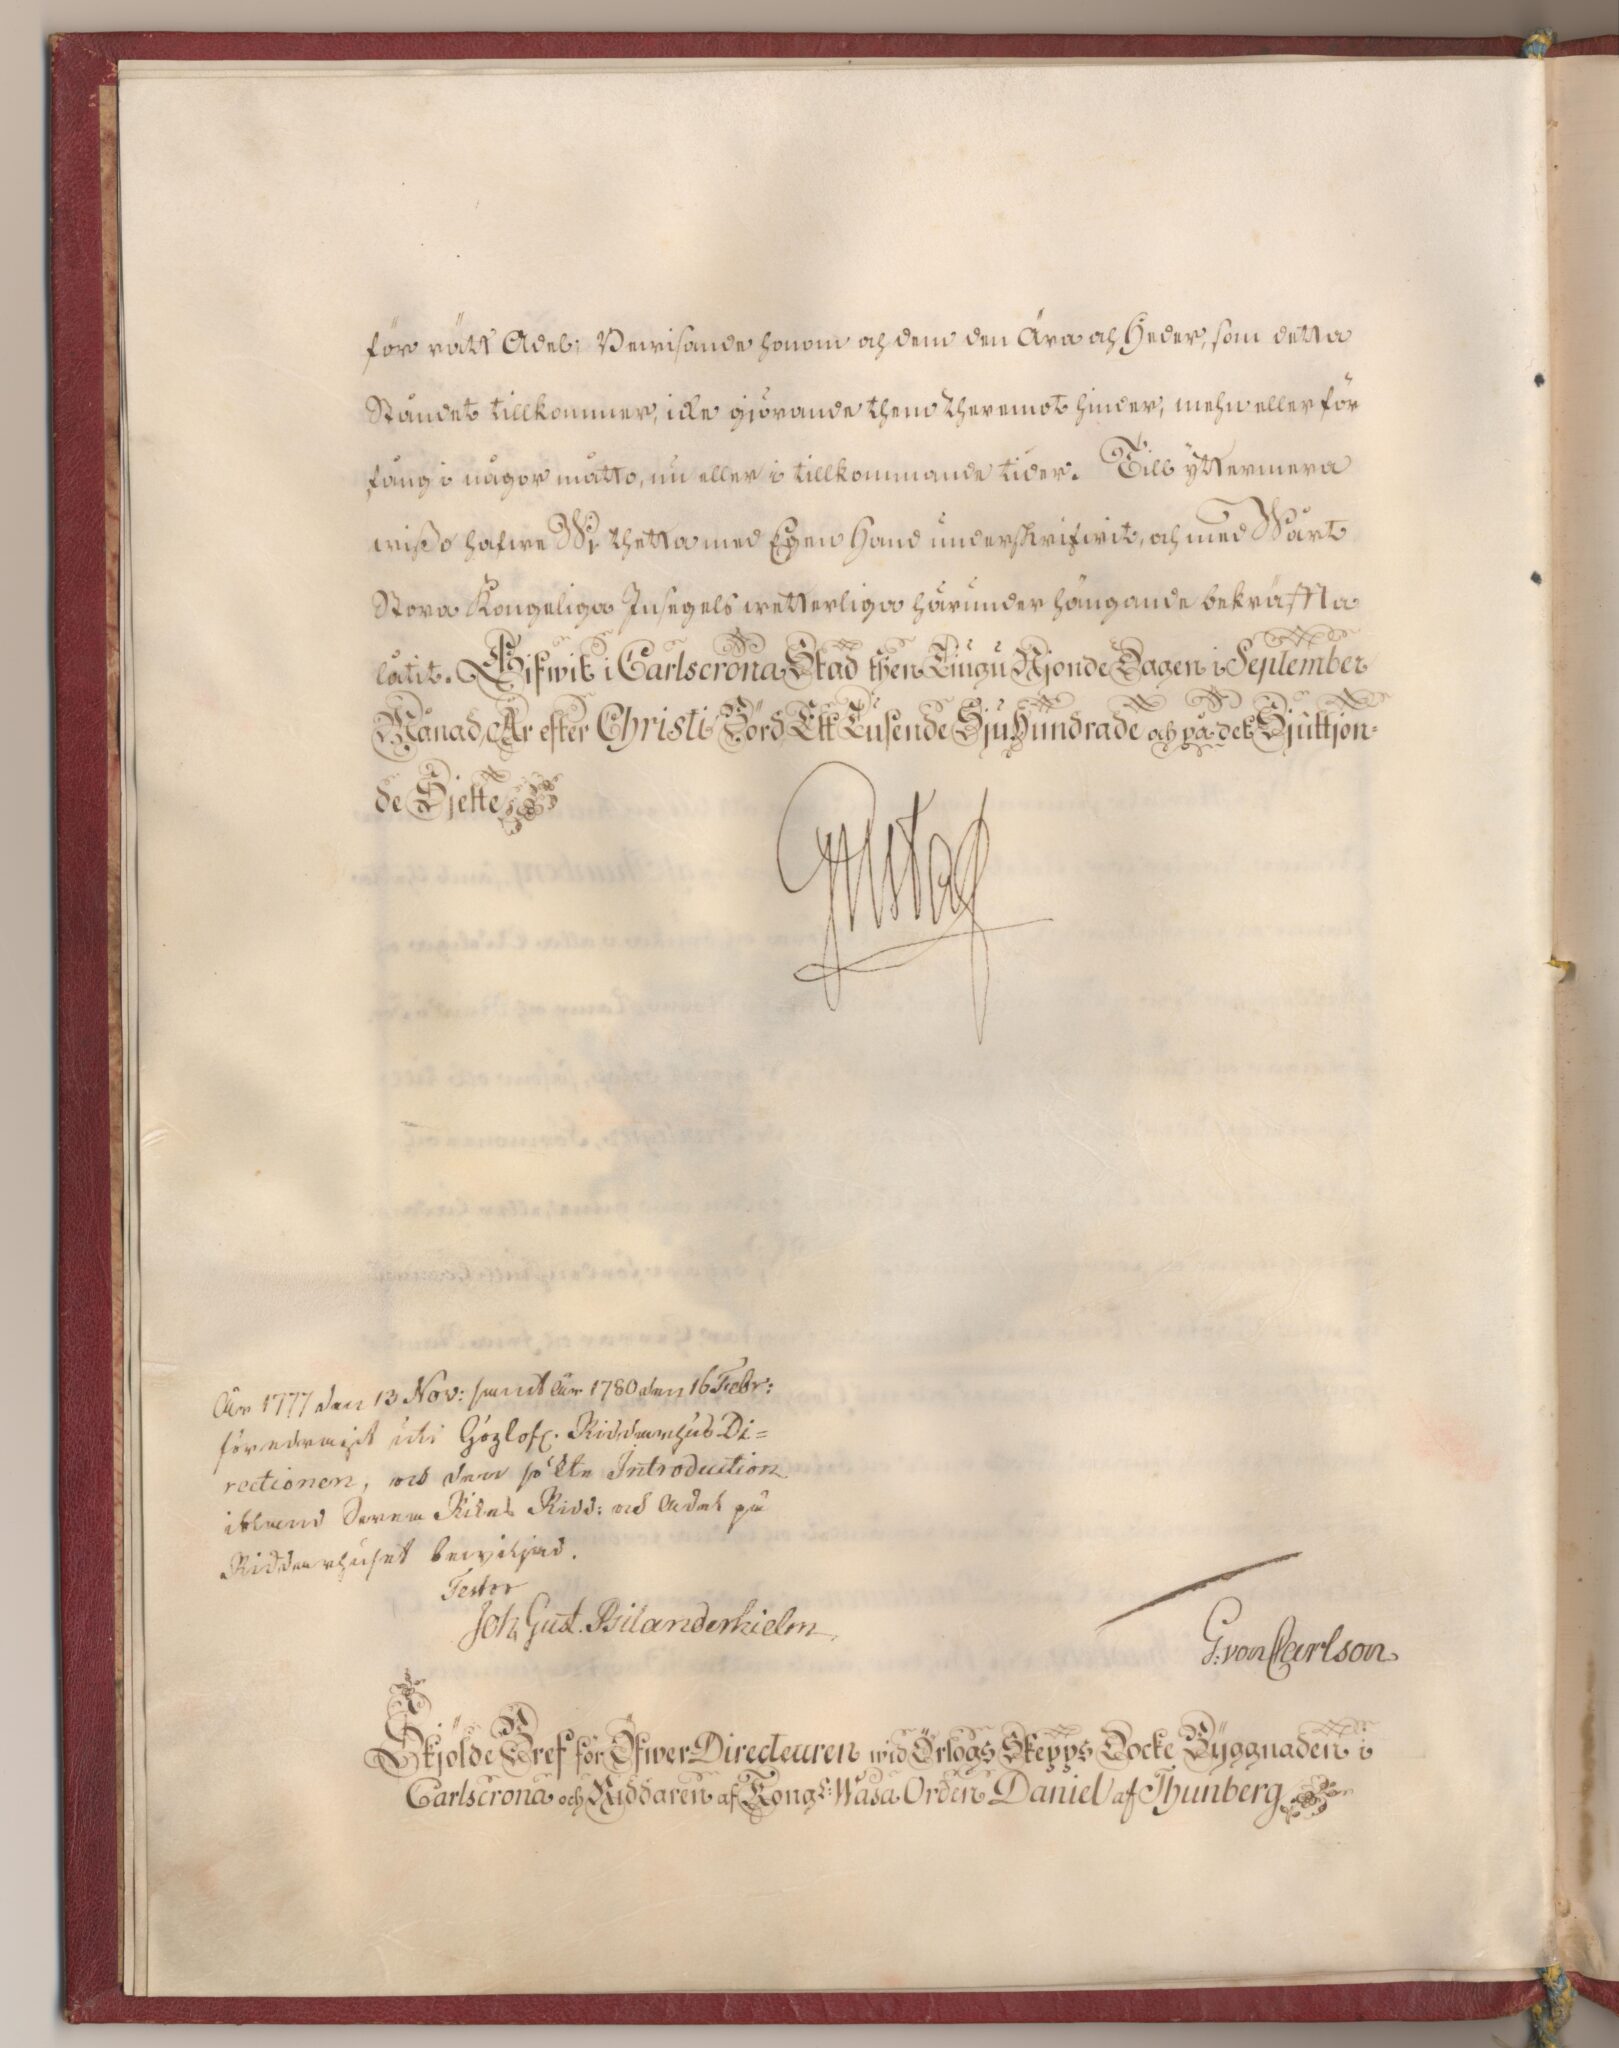 för rätt Adel; Bewisande honom och dem den Ära och Heder, som detta
Ståndet tillkommer, icke giörande them theremot hinder, mehn eller för
fång i någor motto, nu eller i tillkommande tider. Till yttermera
wisso hafwe Wj thetta med Egen Hand underskrifwit, och med Wårt
Stora Kongeliga Insegels wetterliga härunder hängande bekräffta
låtit. Gifwit i Carlscrona Stad then Tiugu Njonde Dagen i September
Månad, År efter Christi Börd Ett Tusende Sju Hundrade och på det Sjuttjon-
de Sjette
Gustaf
År 1777 den 13 Nov: samt År 1780 den 16 Febr:
företrägit uti Höglofl. Riddarhus Di=
rectionen, och den sökte Introduction
ibland Svea Rikes Ridd: och Adel på
Riddarhuset beviljad.
Testor
Joh. Gust. Bilanderhielm
G. von Carlson
Skjölde Bref för Öfwer Directeuren wid Örlogs Skepps Docke Byggnaden i
Carlscrona och Riddaren af Kongl: Wasa Orden Daniel af Thunberg